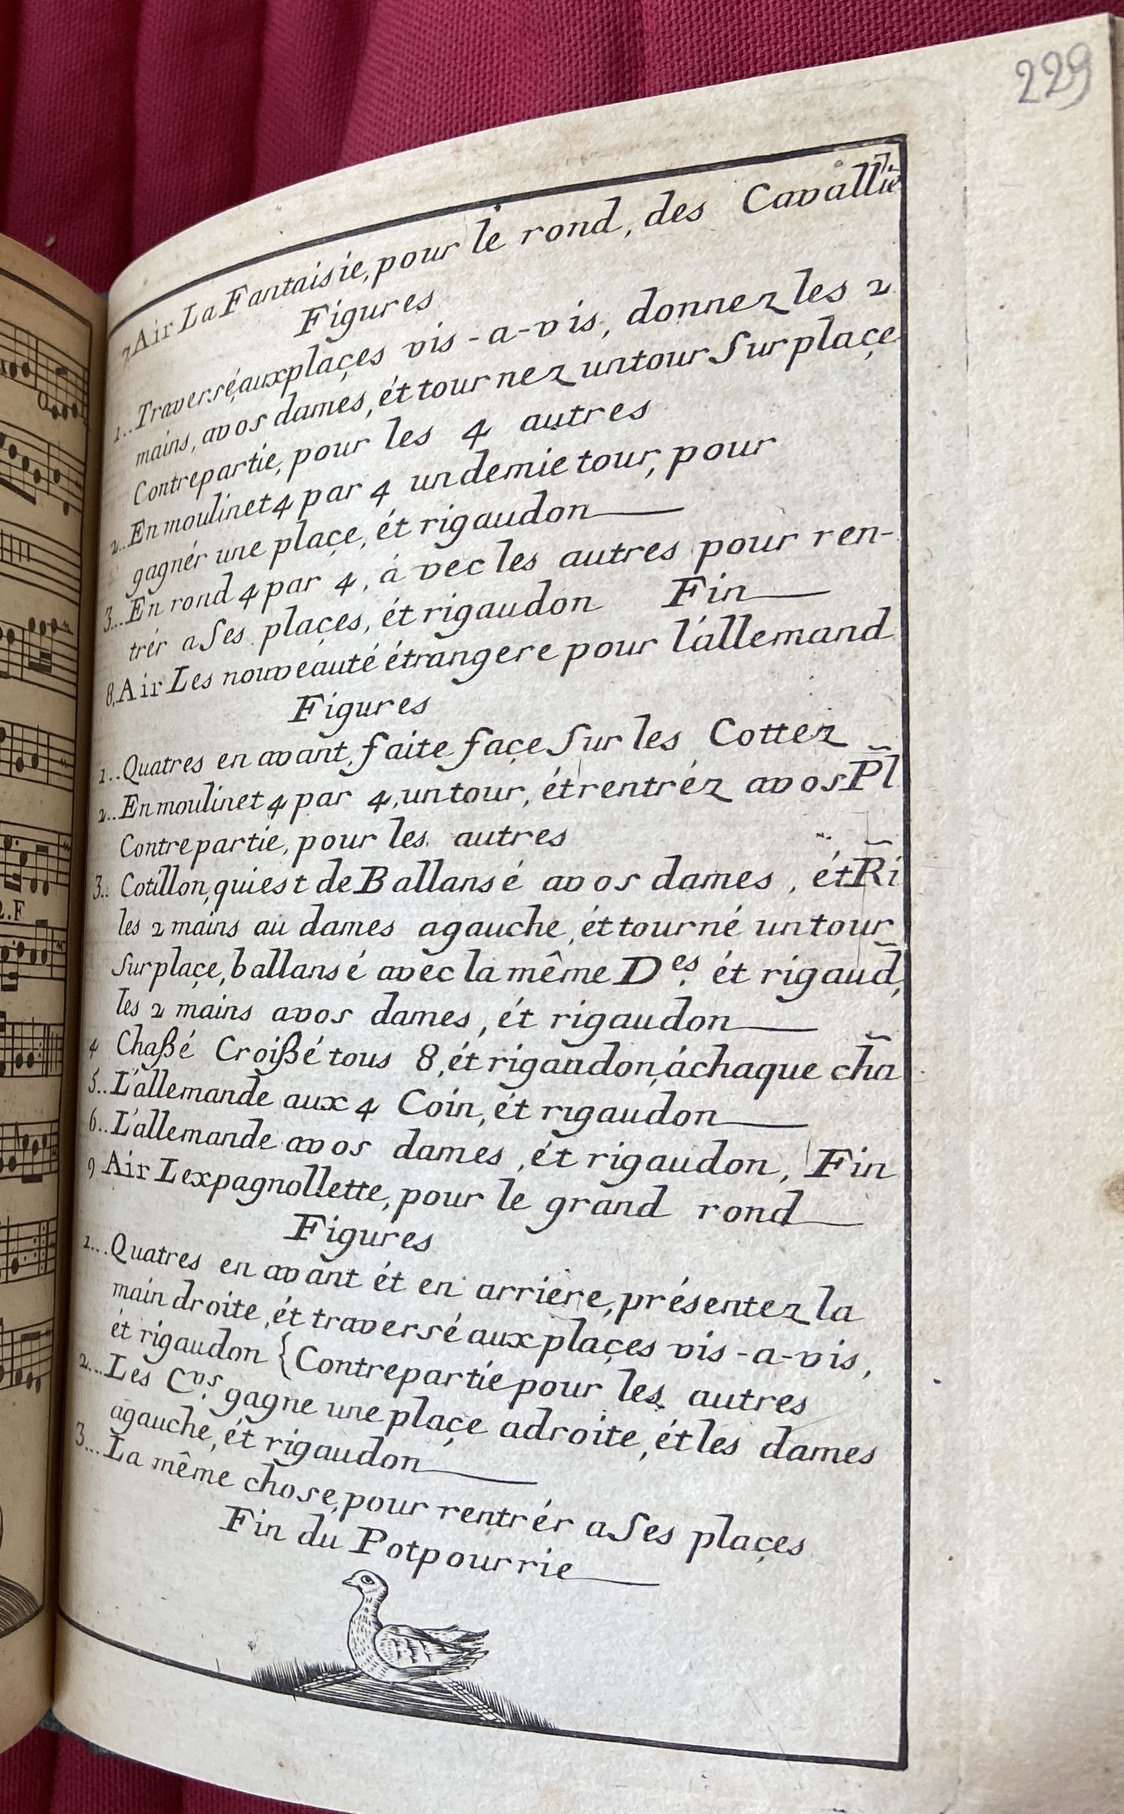 229
7 Air La Fantaisie, pour le rond, des Cavallie
Figures
1.. Traversé aux plaçes vis-a-vis, donnez les 2
mains, avos dames, ét tournez untour Sur plaçe
Contrepartie, pour les 4 autres
2.. En moulinet 4 par 4 undemie tour, pour
gagnér une plaçe, ét rigaudon
3... En rond 4 par 4, à vec les autres pour ren-
trér a Ses plaçes, ét rigaudon Fin
8, Air Les nouveauté étrangere pour l'allemand
Figures
1.. Quatres en avant, faite façe Sur les Cottez
2.. En moulinet 4 par 4, untour, ét rentréz avos Pl
Contrepartie, pour les autres
3.. Cotillon, qui est de Ballansé avos dames, ét Ri
les 2 mains au dames agauche, ét tourné untour
Sur plaçe, ballansé avec la même Des. ét rigaud,
les 2 mains avos dames, ét rigaudon
4 Chaßé Croißé tous 8, ét rigandon, áchaque cha
5.. L'allemande aux 4 Coin, ét rigaudon
6.. L'allemande avos dames, ét rigaudon, Fin
9 Air Lexpagnollette, pour le grand rond
Figures
1... Quatres en avant ét en arriere, présentez la
main droite, ét traversé aux plaçes vis-a-vis,
ét rigaudon { Contrepartie pour les autres
2... Les Cns. gagne une plaçe adroite, ét les dames
agauche, ét rigaudon
3... La même chose, pour rentrér a Ses plaçes
Fin du Potpourrie
2.F